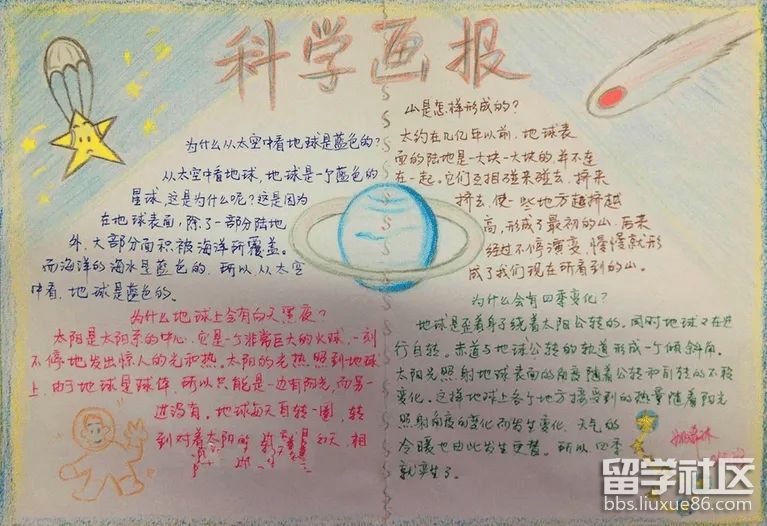 科学画报
为什么从太空中看地球是蓝色的?
从太空中看地球,地球是一个蓝色的
星球,这是为什么呢?这是因为
在地球表面,除了一部分陆地
外,大部分面积被海洋所覆盖。
而海洋的海水是蓝色的,所以,从太空
中看,地球是蓝色的。
为什么地球上会有白天黑夜?
太阳是太阳系的中心,它是一个非常巨大的火球,一刻
不停地发出惊人的光和热。太阳的光热照到地球
上,由于地球是球体,所以只能是一边有阳光,而另一
边没有。地球每天自转一圈,转
到对着太阳的 白天,相
山是怎样形成的?
大约在几亿年以前,地球表
面的陆地是一大块一大块的,并不连
在一起。它们互相碰来碰去,挤来
挤去,使一些地方越挤越
高,形成了最初的山,后来
经过不停演变,慢慢就形
成了我们现在所看到的山。
为什么会有四季变化?
地球是歪着身子绕着太阳公转的,同时地球又在进
行自转。赤道与地球公转的轨道形成一个倾斜角。
太阳光照射地球表面的角度随着公转和自转的不断
变化。这样地球上各个地方接受到的热量随着阳光
照射角度的变化而发生变化,天气的
冷暖也由此发生更替。所以,四季
就产生了。
留学社区
bbs.liuxue86.com